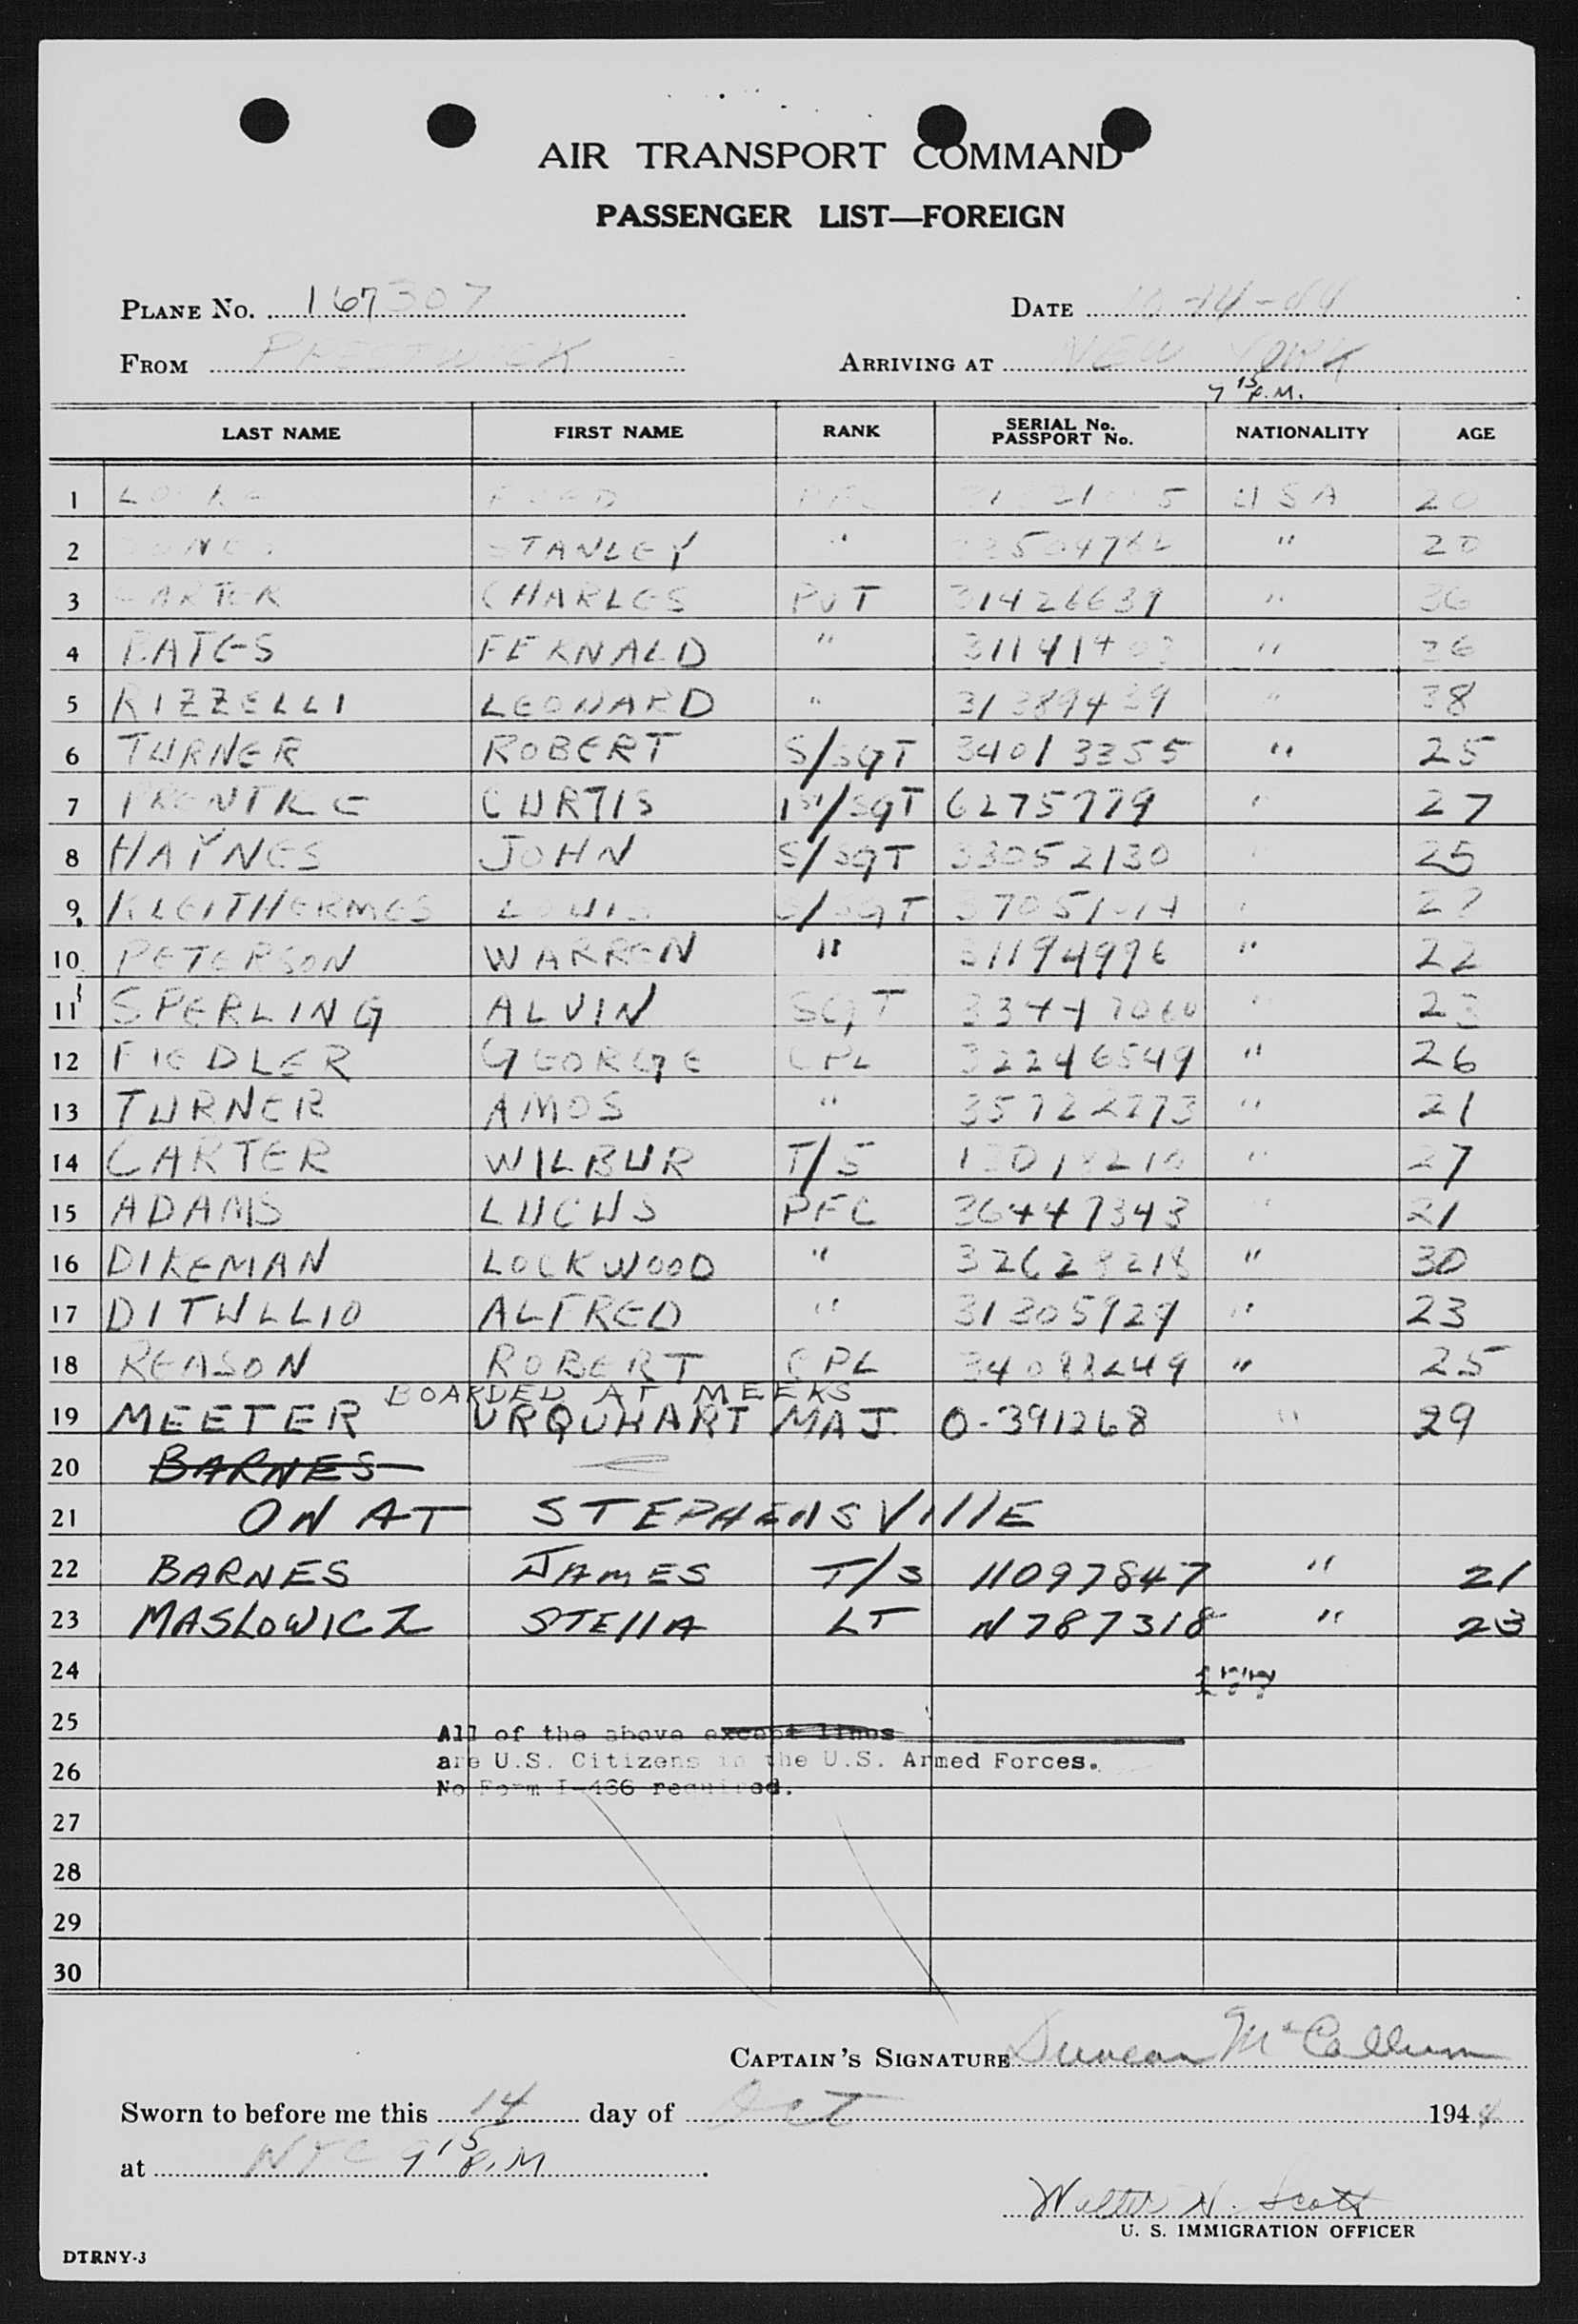 AIR TRANSPORT COMMAND
PASSENGER LIST—FOREIGN
PLANE No. 167307 DATE 10-14-44
FROM PRESTWICK ARRIVING AT NEW YORK
7 15 P.M.
LAST NAME FIRST NAME RANK SERIAL No. PASSPORT No. NATIONALITY AGE
1 USA 20
2 STANLEY " " 20
3 CARTER CHARLES PVT 31426639 " 36
4 BATES FERNALD " " 36
5 RIZZELLI LEONARD " " 38
6 TURNER ROBERT S/SGT 34013355 " 25
7 PRENTICE CURTIS 1ST/SGT 6275779 " 27
8 HAYNES JOHN S/SGT 33052130 " 25
9 KLEITHERMES LOUIS S/SGT "
10 PETERSON WARREN " 31194996 " 22
11 SPERLING ALVIN SGT 33447060 " 23
12 FIEDLER GEORGE CPL 32246549 " 26
13 TURNER AMOS " 35722773 " 21
14 CARTER WILBUR T/5 " 27
15 ADAMS LUCUS PFC 36447343 " 21
16 DIKEMAN LOCKWOOD " 32628218 " 30
17 DITULLIO ALFRED " 31305929 " 23
18 REASON ROBERT CPL 34088249 " 25
BOARDED AT MEEKS
19 MEETER URQUHART MAJ. O-391268 " 29
20 BARNES
21 ON AT STEPHENSVILLE
22 BARNES JAMES T/5 11097847 " 21
23 MASLOWICZ STELLA LT N787318 " 23
24
25 All of the above except lines
26 are U.S. Citizens in the U.S. Armed Forces.
No Form I-466 required.
27
28
29
30
CAPTAIN'S SIGNATURE Duncan McCallum
Sworn to before me this 14 day of Oct 1944
at NYC 9 15 P.M
Walter N. Scott
U. S. IMMIGRATION OFFICER
DTRNY-3